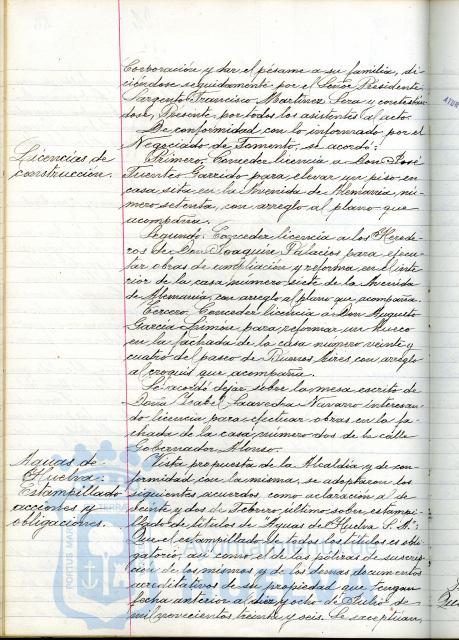 Corporación y dar el pésame a su familia, di-
ciéndose seguidamente por el Señor Presidente,
Sargento Francisco Martinez Sera y contestan-
dose, Presente por todos los asistentes al acto.
De conformidad con lo informado por el
Negociado de Fomento, se acordó:
Licencias de
construcción.
Primero. Conceder licencia a Don José
Fuentes Garrido para elevar un piso en
casa sita en la Avenida de Alemania, nú-
mero setenta, con arreglo al plano que
acompaña.
Segundo. Conceder licencia a los Herede-
ros de Don Joaquín Palacios para ejecu-
tar obras de ampliación y reforma en el inte-
rior de la casa número siete de la Avenida
de Alemania, con arreglo al plano que acompaña.
Tercero. Conceder licencia a Don Augusto
García Limón para reformar un hueco
en la fachada de la casa número veinte y
cuatro del paseo de Buenos Aires, con arreglo
al croquis que acompaña.
Se acordó dejar sobre la mesa escrito de
Doña Isabel Saavedra Navarro interesan-
do licencia para efectuar obras en la fa-
chada de la casa número dos de la calle
Gobernador Alonso.
Aguas de
Huelva:
Estampillado
acciones y
obligaciones.
Vista propuesta de la Alcaldía y de con-
formidad con la misma, se adoptaron los
siguientes acuerdos, como aclaración al de
veinte y dos de Febrero último sobre estampi-
llado de títulos de Aguas de Huelva S. A:
Que el estampillado de todos los títulos es obli-
gatorio, así como el de las pólizas de suscrip-
ción de los mismos y de los demas documentos
acreditativos de su propiedad que tengan
fecha anterior al diez y ocho de Julio de
mil novecientos treinta y seis. Se exceptuan,
PORTUS MARIS
TERRAE